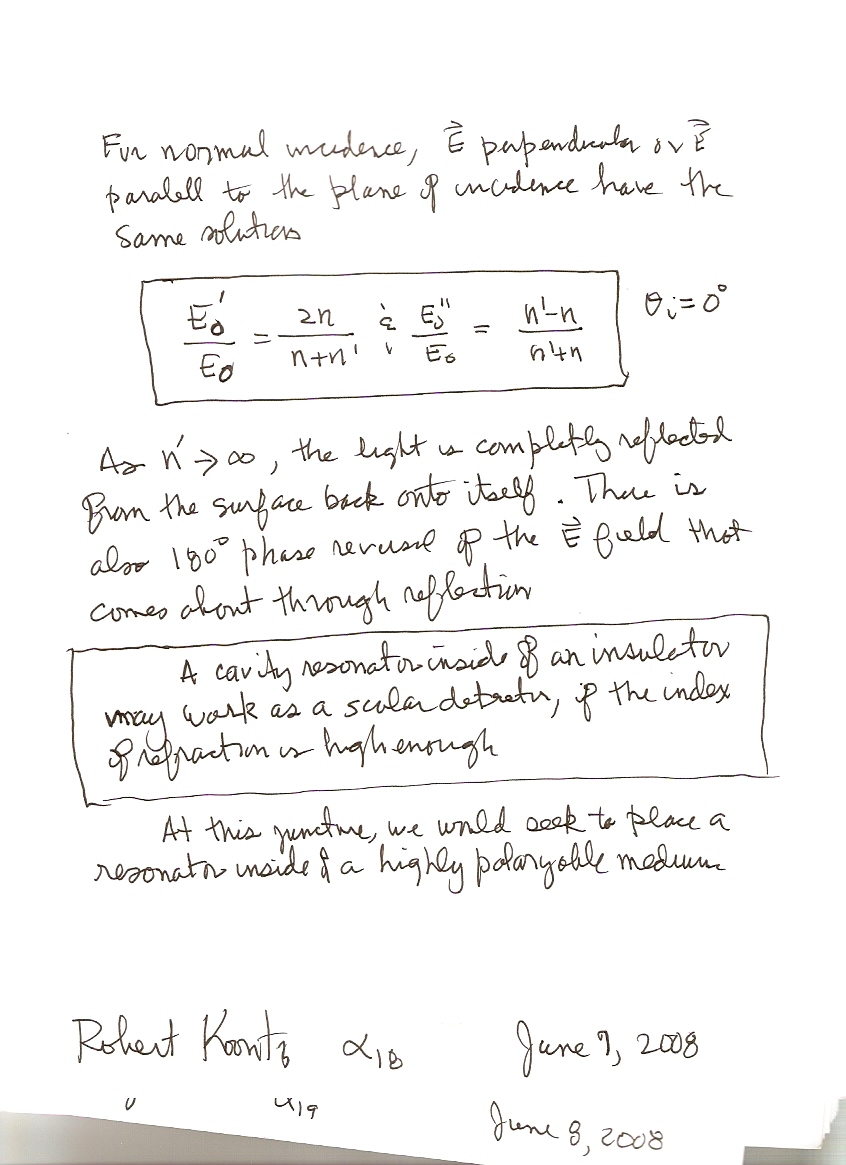 For normal incidence, E⃗ perpendicular or E⃗
paralell to the plane of incidence have the
same solutions
E₀'/E₀ = 2n/(n+n') & E₀''/E₀ = (n'-n)/(n'+n) θᵢ=0°
As n' → ∞, the light is completly reflected
from the surface back onto itself. There is
also 180° phase reversal of the E⃗ field that
comes about through reflection
A cavity resonator inside of an insulator
may work as a scalar detector, if the index
of refraction is high enough
At this juncture, we would seek to place a
resonator inside of a highly polarizable medium
Robert Koontz α₁₈ June 7, 2008
α₁₉
June 8, 2008